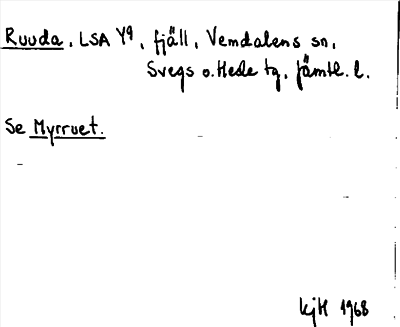 Ruuda, LSA Y9, fjäll, Vemdalens sn,
Svegs o. Hede tg, Jämtl. l.
Se Myrruet.
kjH 1968